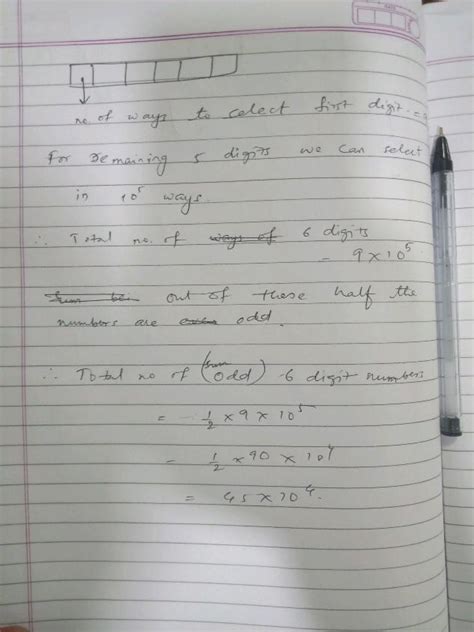 no of ways to select first digit =
For remaining 5 digits we can select
in 10⁵ ways.
∴ Total no. of ways of 6 digits
= 9 × 10⁵.
out of these half the
numbers are odd.
∴ Total no of (sum odd) 6 digit numbers
= ½ × 9 × 10⁵
= ½ × 90 × 10⁴
= 45 × 10⁴.